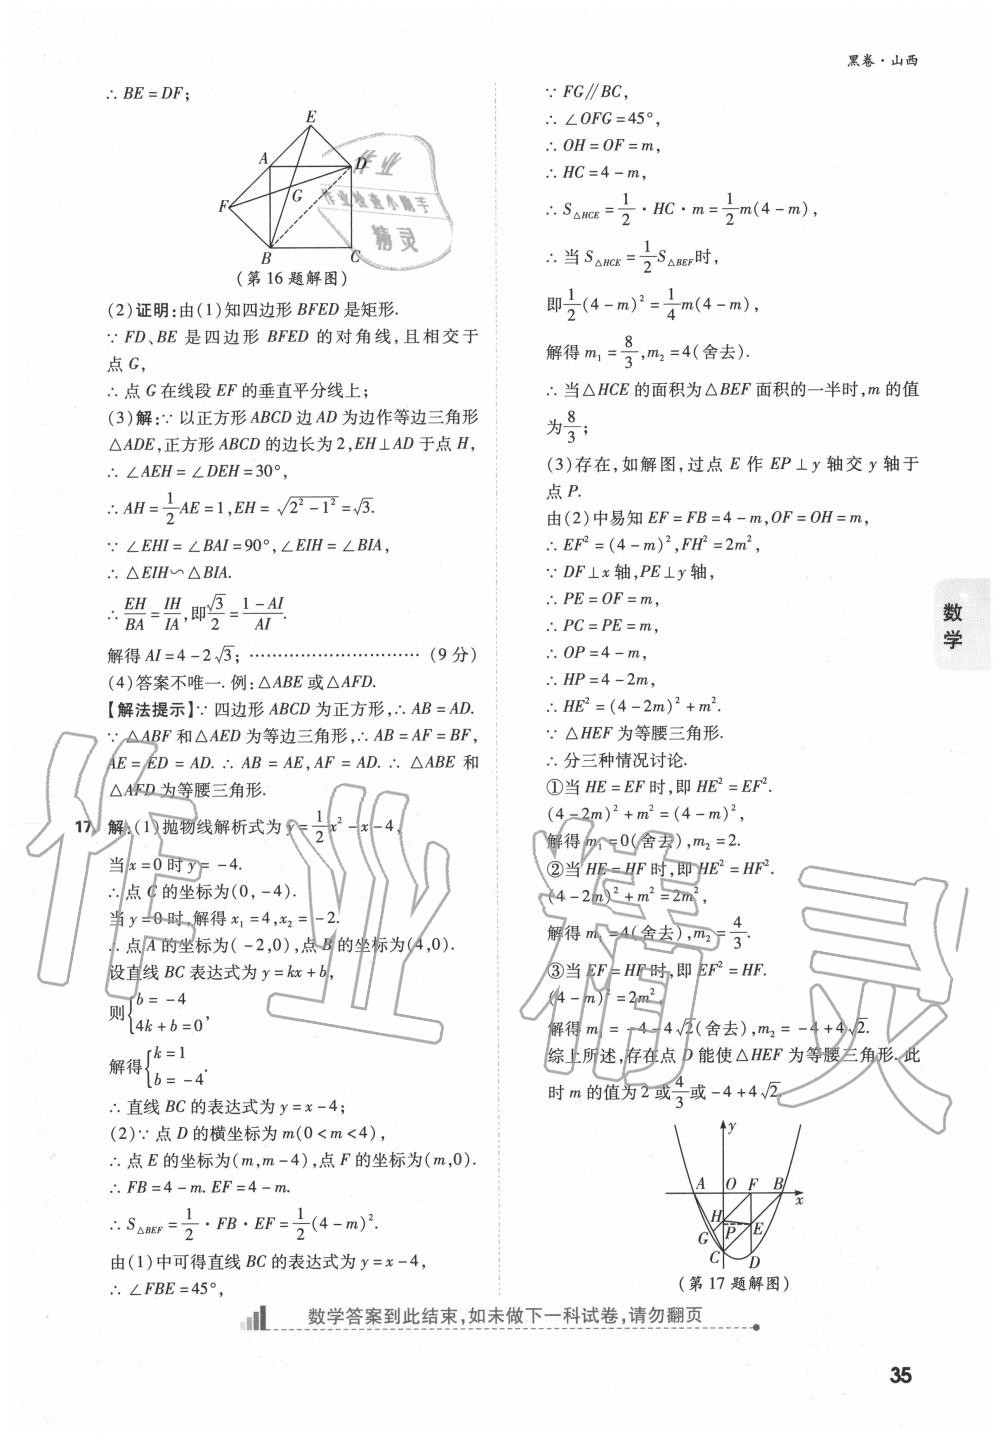 黑卷·山西
∴ BE = DF;
E
A
D
G
F
B
C
作业
作业检查小助手
精灵
(第16题解图)
(2)证明:由(1)知四边形 BFED 是矩形.
∵ FD、BE 是四边形 BFED 的对角线,且相交于
点 G,
∴ 点 G 在线段 EF 的垂直平分线上;
(3)解:∵ 以正方形 ABCD 边 AD 为边作等边三角形
△ADE,正方形 ABCD 的边长为 2,EH⊥AD 于点 H,
∴ ∠AEH = ∠DEH = 30°,
∴ AH = 1/2 AE = 1,EH = √(2² - 1²) = √3.
∵ ∠EHI = ∠BAI = 90°,∠EIH = ∠BIA,
∴ △EIH∽△BIA.
∴ EH/BA = IH/IA,即 √3/2 = (1 - AI)/AI.
解得 AI = 4 - 2√3; …………………………(9 分)
(4)答案不唯一.例:△ABE 或△AFD.
【解法提示】∵ 四边形 ABCD 为正方形,∴ AB = AD.
∵ △ABF 和△AED 为等边三角形,∴ AB = AF = BF,
AE = ED = AD. ∴ AB = AE,AF = AD. ∴ △ABE 和
△AFD 为等腰三角形.
17. 解:(1)抛物线解析式为 y = 1/2 x² - x - 4,
当 x = 0 时 y = -4.
∴ 点 C 的坐标为(0, -4).
当 y = 0 时,解得 x₁ = 4,x₂ = -2.
∴ 点 A 的坐标为( -2,0),点 B 的坐标为(4,0).
设直线 BC 表达式为 y = kx + b,
则{b = -4
4k + b = 0,
解得{k = 1
b = -4.
∴ 直线 BC 的表达式为 y = x - 4;
(2)∵ 点 D 的横坐标为 m(0 < m < 4),
∴ 点 E 的坐标为(m,m - 4),点 F 的坐标为(m,0).
∴ FB = 4 - m. EF = 4 - m.
∴ S△BEF = 1/2 · FB · EF = 1/2 (4 - m)².
由(1)中可得直线 BC 的表达式为 y = x - 4,
∴ ∠FBE = 45°,
∵ FG∥BC,
∴ ∠OFG = 45°,
∴ OH = OF = m,
∴ HC = 4 - m,
∴ S△HCE = 1/2 · HC · m = 1/2 m(4 - m),
∴ 当 S△HCE = 1/2 S△BEF时,
即 1/2 (4 - m)² = 1/4 m(4 - m),
解得 m₁ = 8/3,m₂ = 4(舍去).
∴ 当△HCE 的面积为△BEF 面积的一半时,m 的值
为 8/3;
(3)存在,如解图,过点 E 作 EP⊥y 轴交 y 轴于
点 P.
由(2)中易知 EF = FB = 4 - m,OF = OH = m,
∴ EF² = (4 - m)²,FH² = 2m²,
∵ DF⊥x 轴,PE⊥y 轴,
∴ PE = OF = m,
∴ PC = PE = m,
∴ OP = 4 - m,
∴ HP = 4 - 2m,
∴ HE² = (4 - 2m)² + m².
∵ △HEF 为等腰三角形.
∴ 分三种情况讨论.
①当 HE = EF 时,即 HE² = EF².
(4 - 2m)² + m² = (4 - m)²,
解得 m₁ = 0(舍去),m₂ = 2.
②当 HE = HF 时,即 HE² = HF².
(4 - 2m)² + m² = 2m²,
解得 m₁ = 4(舍去),m₂ = 4/3.
③当 EF = HF 时,即 EF² = HF.
(4 - m)² = 2m²,
解得 m₁ = -4 - 4√2(舍去),m₂ = -4 + 4√2.
综上所述,存在点 D 能使△HEF 为等腰三角形.此
时 m 的值为 2 或 4/3 或 -4 + 4√2.
y
A
O
F
B
x
H
P
E
G
C
D
(第17题解图)
数学
数学答案到此结束,如未做下一科试卷,请勿翻页
35
作业精灵